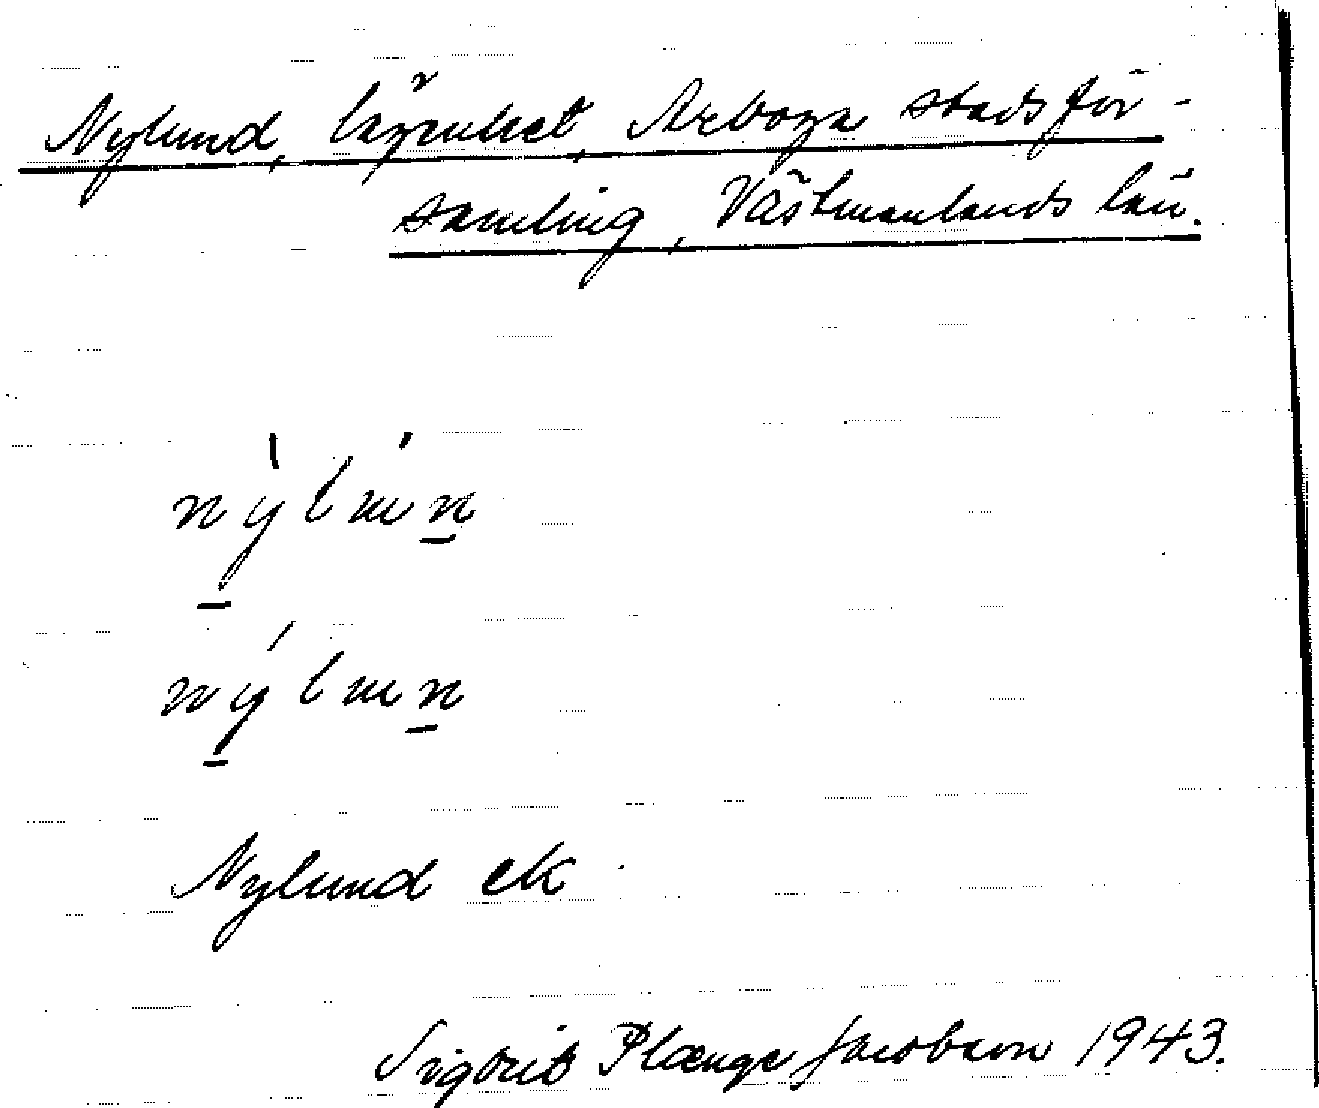 Nylund, lägenhet, Arboga stadsför-
samling, Västmanlands län.
nỳlún
nýlun
Nylund ek
Sigbrit Plænge Jacobson 1943.